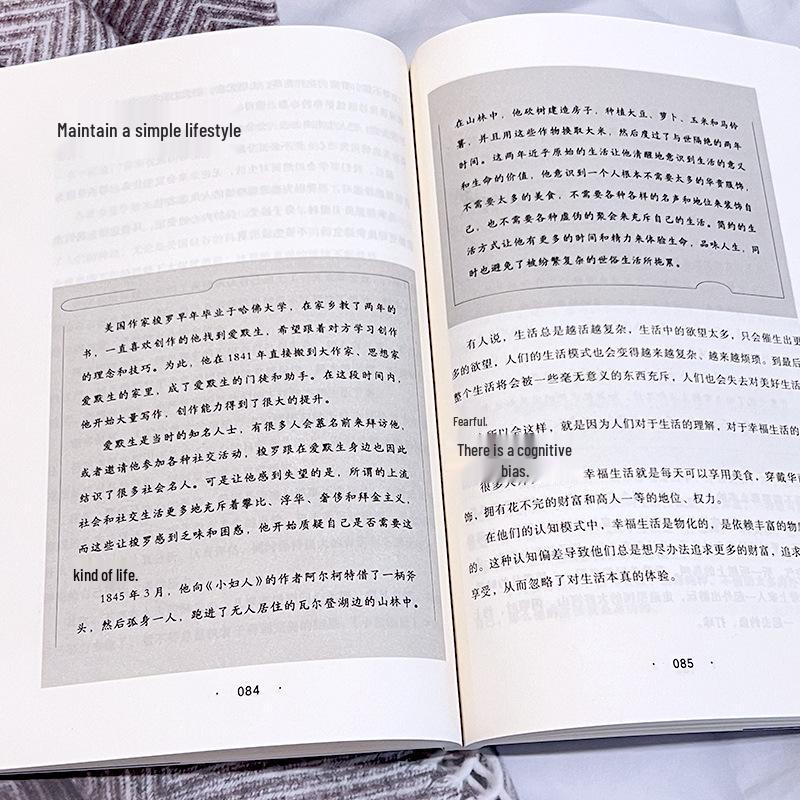 Maintain a simple lifestyle
美国作家梭罗早年毕业于哈佛大学，在家乡教了两年的
书，一直喜欢创作的他找到爱默生，希望跟着对方学习创作
的理念和技巧。为此，他在1841年直接搬到大作家、思想家
爱默生的家里，成了爱默生的门徒和助手。在这段时间内，
他开始大量写作，创作能力得到了很大的提升。
爱默生是当时的知名人士，有很多人会慕名前来拜访他，
或者邀请他参加各种社交活动，梭罗跟在爱默生身边也因此
结识了很多社会名人。可是让他感到失望的是，所谓的上流
社会和社交生活更多地充斥着攀比、浮华、奢侈和拜金主义，
而这些让梭罗感到乏味和困惑，他开始质疑自己是否需要这
kind of life.
1845年3月，他向《小妇人》的作者阿尔柯特借了一柄斧
头，然后孤身一人，跑进了无人居住的瓦尔登湖边的山林中。
· 084 ·
在山林中，他砍树建造房子，种植大豆、萝卜、玉米和马铃
薯，并且用这些作物换取大米，然后度过了与世隔绝的两年
时间。这两年近乎原始的生活让他清醒地意识到生活的意义
和生命的价值，他意识到一个人根本不需要太多的华贵服饰，
不需要太多的美食，不需要各种各样的名声和地位来装饰自
己，也不需要各种虚伪的聚会来充斥自己的生活。简约的生
活方式让他有更多的时间和精力来体验生命，品味人生，同
时也避免了被纷繁复杂的世俗生活所拖累。
有人说，生活总是越活越复杂，生活中的欲望太多，只会催生出更
多的欲望，人们的生活模式也会变得越来越复杂、越来越烦琐。到最后
整个生活将会被一些毫无意义的东西充斥，人们也会失去对美好生活
Fearful.
所以会这样，就是因为人们对于生活的理解，对于幸福生活的
There is a cognitive
bias.
很多人 幸福生活就是每天可以享用美食，穿戴华
饰，拥有花不完的财富和高人一等的地位、权力。
在他们的认知模式中，幸福生活是物化的，是依赖丰富的物
的。这种认知偏差导致他们总是想尽办法追求更多的财富，追求
享受，从而忽略了对生活本真的体验。
· 085 ·